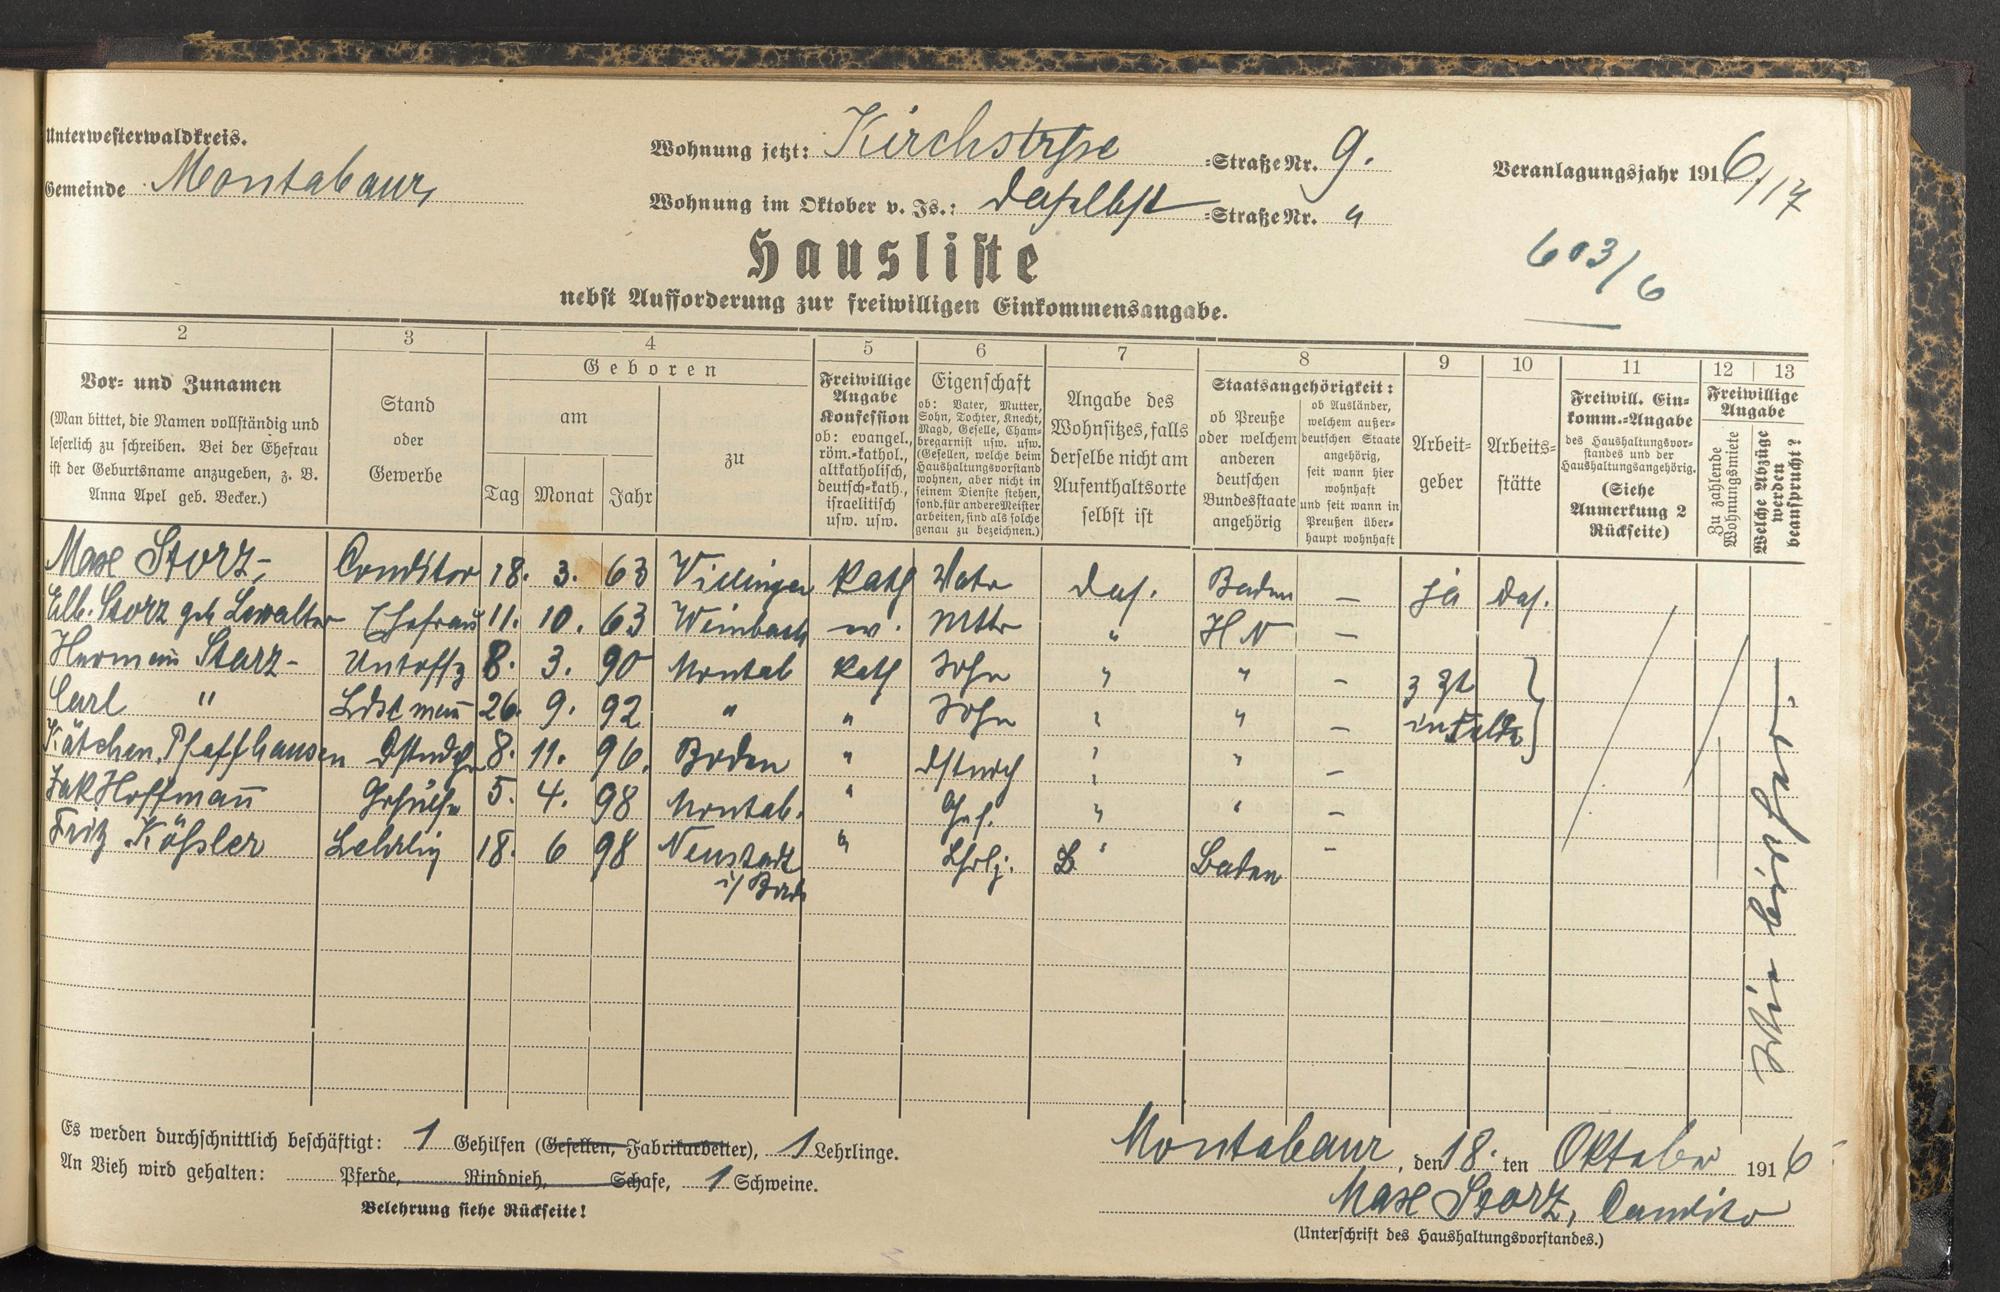 Unterwesterwaldkreis.
Gemeinde Montabaur,
Wohnung jetzt: Kirchstrsse =Straße Nr. 9.
Wohnung im Oktober v. Js.: daselbst =Straße Nr. "
Veranlagungsjahr 1916/17
603/6
Hausliste
nebst Aufforderung zur freiwilligen Einkommensangabe.
2 3 4 5 6 7 8 9 10 11 12 13
Vor- und Zunamen
(Man bittet, die Namen vollständig und
leserlich zu schreiben. Bei der Ehefrau
ist der Geburtsname anzugeben, z. B.
Anna Apel geb. Becker.)
Stand
oder
Gewerbe
Geboren
am
Tag Monat Jahr
zu
Freiwillige
Angabe
Konfession
ob: evangel.,
röm.-kathol.,
altkatholisch,
deutsch-kath.,
israelitisch
usw. usw.
Eigenschaft
ob: Vater, Mutter,
Sohn, Tochter, Knecht,
Magd, Geselle, Cham-
bregarnist usw. usw.
(Gesellen, welche beim
Haushaltungsvorstand
wohnen, aber nicht in
seinem Dienste stehen,
sond. für andere Meister
arbeiten, sind als solche
genau zu bezeichnen.)
Angabe des
Wohnsitzes, falls
derselbe nicht am
Aufenthaltsorte
selbst ist
Staatsangehörigkeit:
ob Preuße
oder welchem
anderen
deutschen
Bundesstaate
angehörig
ob Ausländer,
welchem außer-
deutschen Staate
angehörig,
seit wann hier
wohnhaft
und seit wann in
Preußen über-
haupt wohnhaft
Arbeit-
geber
Arbeits-
stätte
Freiwill. Ein-
komm.-Angabe
des Haushaltungsvor-
standes und der
Haushaltungsangehörig.
(Siehe
Anmerkung 2
Rückseite)
Freiwillige
Angabe
Zu zahlende
Wohnungsmiete
Welche Abzüge
werden
beansprucht?
Max Storz, Conditor 18. 3. 63 Villingen Kath Vatr das. Baden – ja das.
Elb. Storz geb Lewalter Ehefrau 11. 10. 63 Weinbach ev. Mttr " H N –
Herman Storz- Untoffz 8. 3. 90 Montab Kath Sohn " " – z Zt
Carl " Ldstman 26. 9. 92 " " Sohn " " – in Felde
Kätchen Pfaffhausen Dstmdch 8. 11. 96. Boden " Dstmch " " –
Jak Hoffman Gehülfe 5. 4. 98 Montab. " Geh. " " –
Fritz Kößler Lehrling 18. 6 98 Neustadt " Lhrlg. B " Baden –
i/ Bad.
Es werden durchschnittlich beschäftigt: 1 Gehilfen (Gesellen, Fabrikarbeiter), 1 Lehrlinge.
An Vieh wird gehalten: Pferde, Rindvieh, Schafe, 1 Schweine.
Belehrung siehe Rückseite!
Montabaur, den 18. ten Oktober 1916
Max Storz, Conditor
(Unterschrift des Haushaltungsvorstandes.)